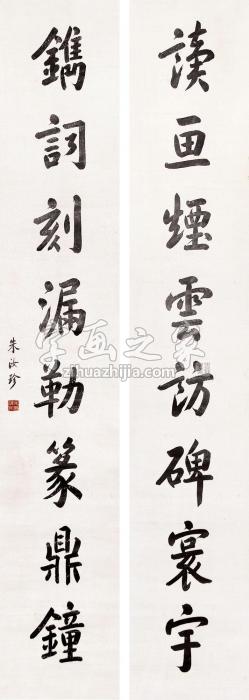 讀画煙雲訪碑寰宇
鐫詞刻漏勒篆鼎鐘
朱汝珍
字画之家
zihuazhijia.com